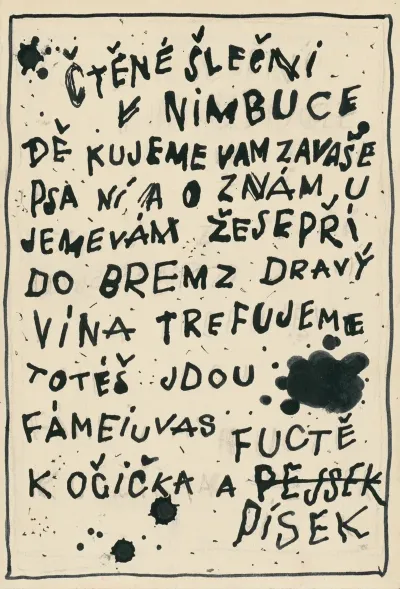 ČTĚNÉ ŠLEČNI
V NIMBUCE
DĚ KUJEME VAM ZAVAŠE
PSA NÍ A O ZNÁM U
JEMEVÁM ŽESEPŘÍ
DO BREMZ DRAVÝ
VÍNA TREFUJEME
TOTÉŠ JDOU
FÁMEIUVAS
FUCTĚ
K OČIČKA A PEJSEK
PÍSEK